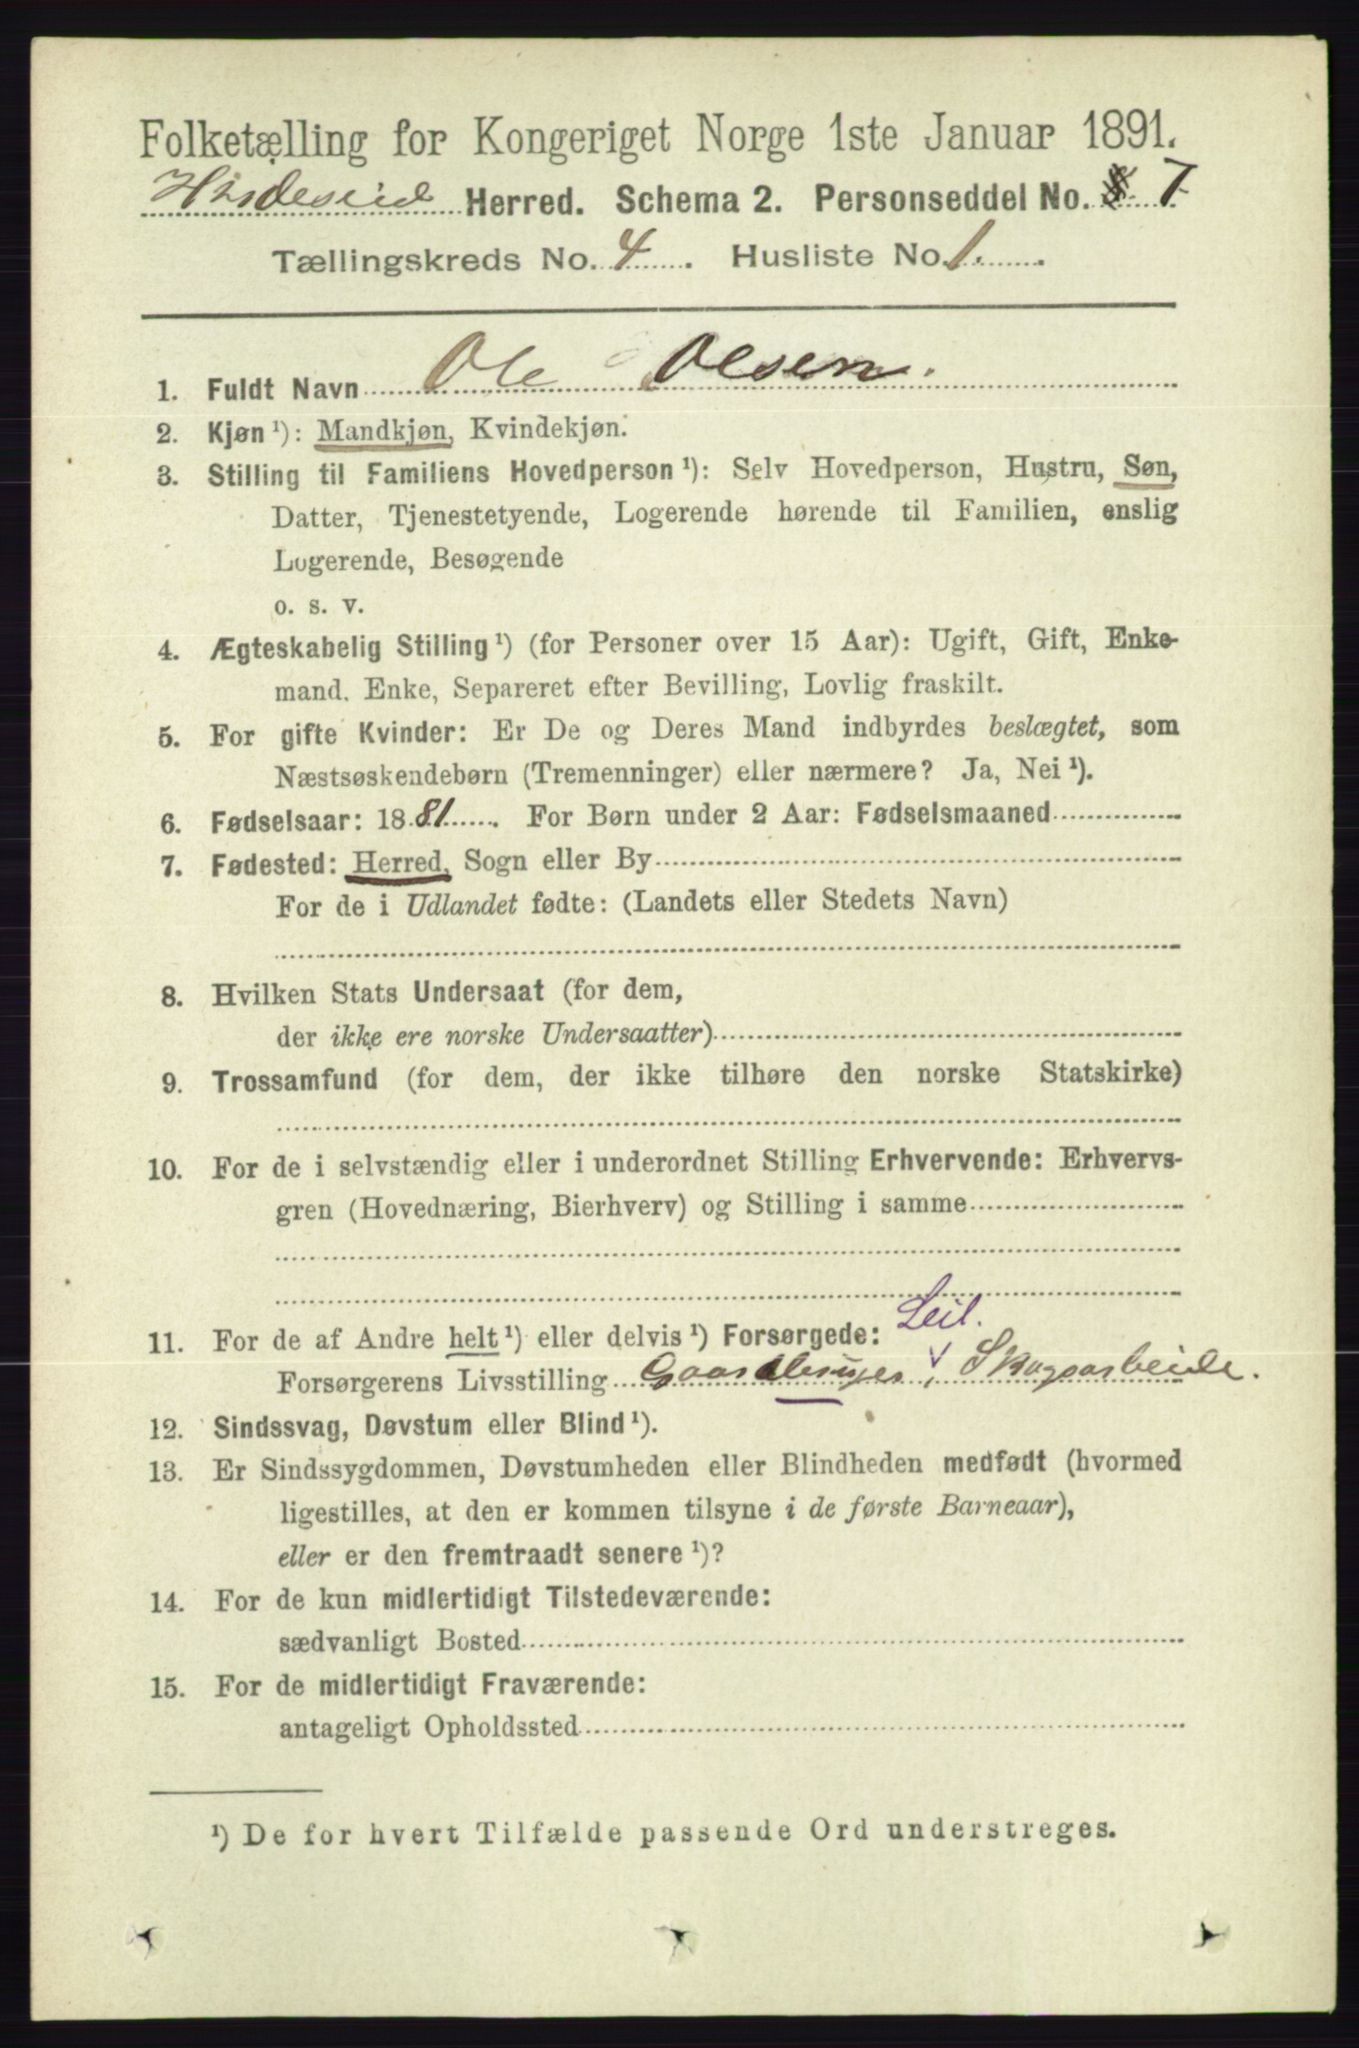 Folketælling for Kongeriget Norge 1ste Januar 1891.
Hvideseid Herred. Schema 2. Personseddel No. 7
Tællingskreds No. 4. Husliste No. 1.
1. Fuldt Navn Ole Olsen.
2. Kjøn ¹): Mandkjøn, Kvindekjøn.
3. Stilling til Familiens Hovedperson ¹): Selv Hovedperson, Hustru, Søn,
Datter, Tjenestetyende, Logerende hørende til Familien, enslig
Logerende, Besøgende
o. s. v.
4. Ægteskabelig Stilling ¹) (for Personer over 15 Aar): Ugift, Gift, Enke-
mand, Enke, Separeret efter Bevilling, Lovlig fraskilt.
5. For gifte Kvinder: Er De og Deres Mand indbyrdes beslægtet, som
Næstsøskendebørn (Tremenninger) eller nærmere? Ja, Nei ¹).
6. Fødselsaar: 1881. For Børn under 2 Aar: Fødselsmaaned
7. Fødested: Herred, Sogn eller By
For de i Udlandet fødte: (Landets eller Stedets Navn)
8. Hvilken Stats Undersaat (for dem,
der ikke ere norske Undersaatter)
9. Trossamfund (for dem, der ikke tilhøre den norske Statskirke)
10. For de i selvstændig eller i underordnet Stilling Erhvervende: Erhvervs-
gren (Hovednæring, Bierhverv) og Stilling i samme
Leil.
11. For de af Andre helt ¹) eller delvis ¹) Forsørgede:
Forsørgerens Livsstilling Gaardbruger, Skogsarbeide.
12. Sindssvag, Døvstum eller Blind ¹).
13. Er Sindssygdommen, Døvstumheden eller Blindheden medfødt (hvormed
ligestilles, at den er kommen tilsyne i de første Barneaar),
eller er den fremtraadt senere ¹)?
14. For de kun midlertidigt Tilstedeværende:
sædvanligt Bosted
15. For de midlertidigt Fraværende:
antageligt Opholdssted
¹) De for hvert Tilfælde passende Ord understreges.